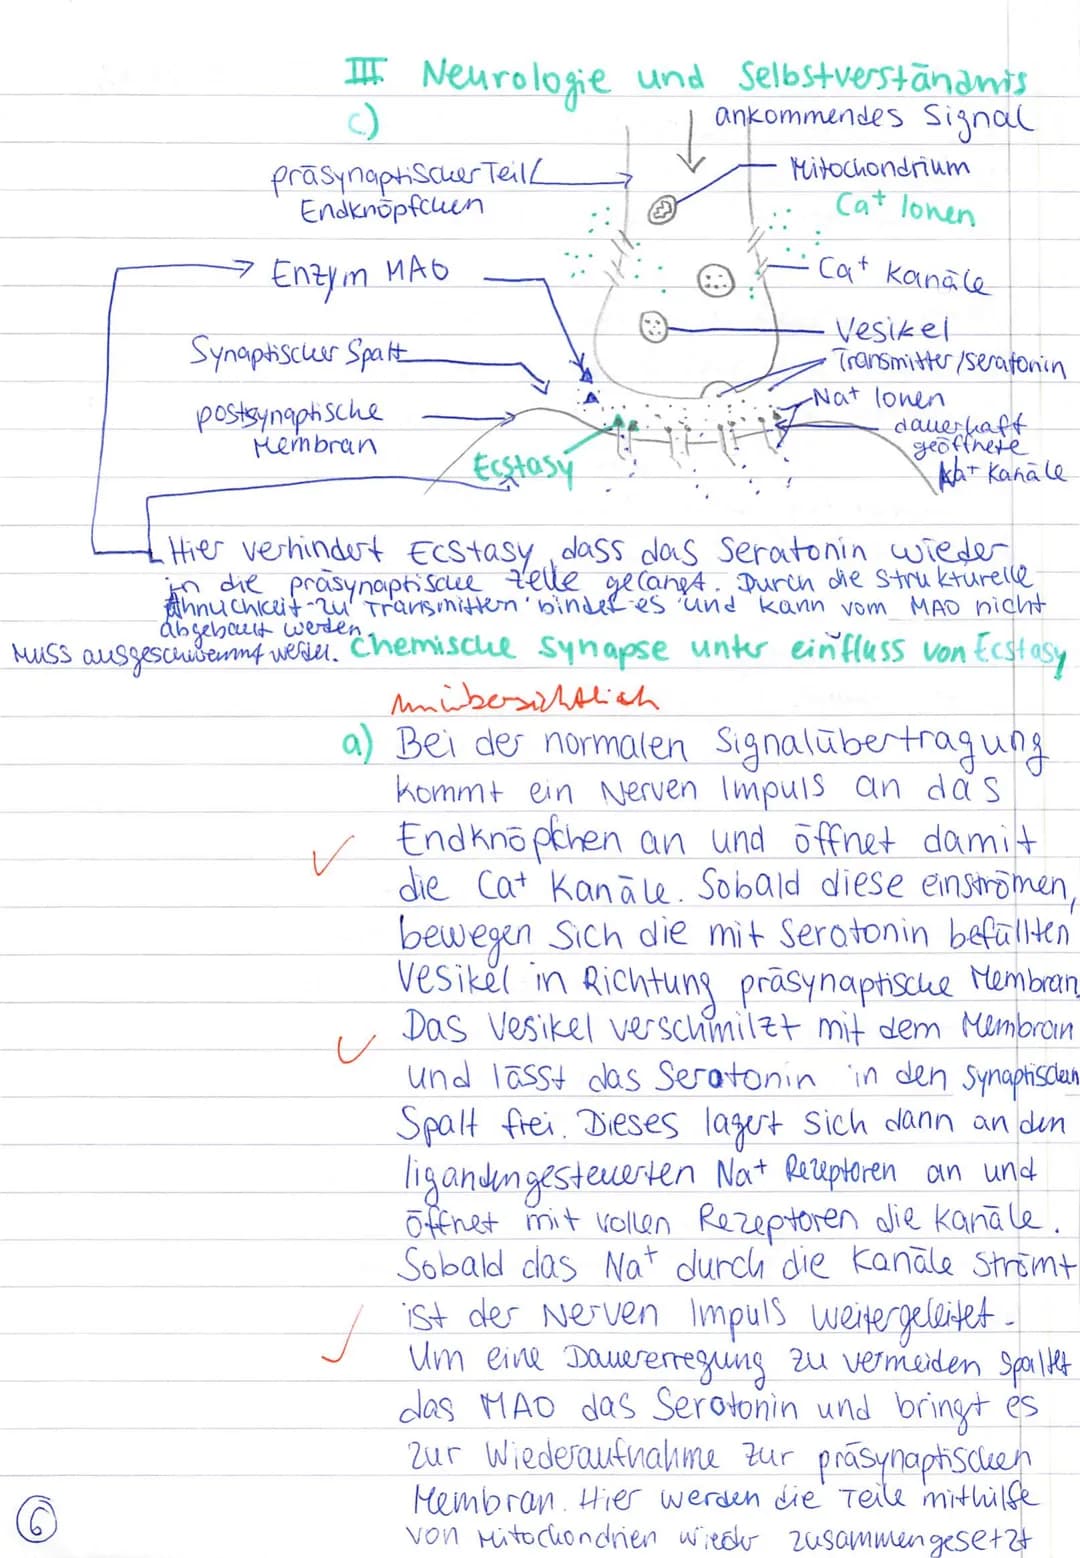 III Neurologie und Selbstverständnis
c)
ankommendes Signal
präsynaptischer Teil/
Endknöpfchen
Mitochondrium
Ca+ Ionen
Enzym MAO
Ca+ Kanäle
Synaptischer Spalt
Vesikel
Transmitter/Seratonin
Na+ Ionen
postsynaptische
Membran
dauerhaft
geöffnete
Na+ Kanäle
Ecstasy
Hier verhindert Ecstasy, dass das Seratonin wieder
in die präsynaptische Zelle gelangt. Durch die Strukturelle
Ähnlichkeit zu Transmittern bindet es und kann vom MAO nicht
abgebaut werden.
Muss ausgeschwemmt werden. Chemische Synapse unter einfluss von Ecstasy
unübersichtlich
a) Bei der normalen Signalübertragung
kommt ein Nerven Impuls an das
Endknöpfchen an und öffnet damit
die Ca+ Kanäle. Sobald diese einströmen,
bewegen sich die mit Seratonin befüllten
Vesikel in Richtung präsynaptische Membran.
Das Vesikel verschmilzt mit dem Membran
und lässt das Seratonin in den Synaptischen
Spalt frei. Dieses lagert sich dann an den
ligandengesteuerten Na+ Rezeptoren an und
öffnet mit vollen Rezeptoren die Kanäle.
Sobald das Na+ durch die Kanäle Strömt
ist der Nerven Impuls weitergeleitet.
Um eine Dauererregung zu vermeiden spaltet
das MAO das Serotonin und bringt es
zur Wiederaufnahme zur präsynaptischen
Membran. Hier werden die Teile mithilfe
von Mitochondrien wieder zusammengesetzt
6